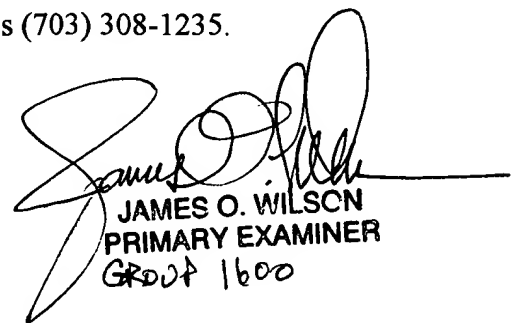 s (703) 308-1235.
James O. Wilson
JAMES O. WILSON
PRIMARY EXAMINER
GROUP 1600